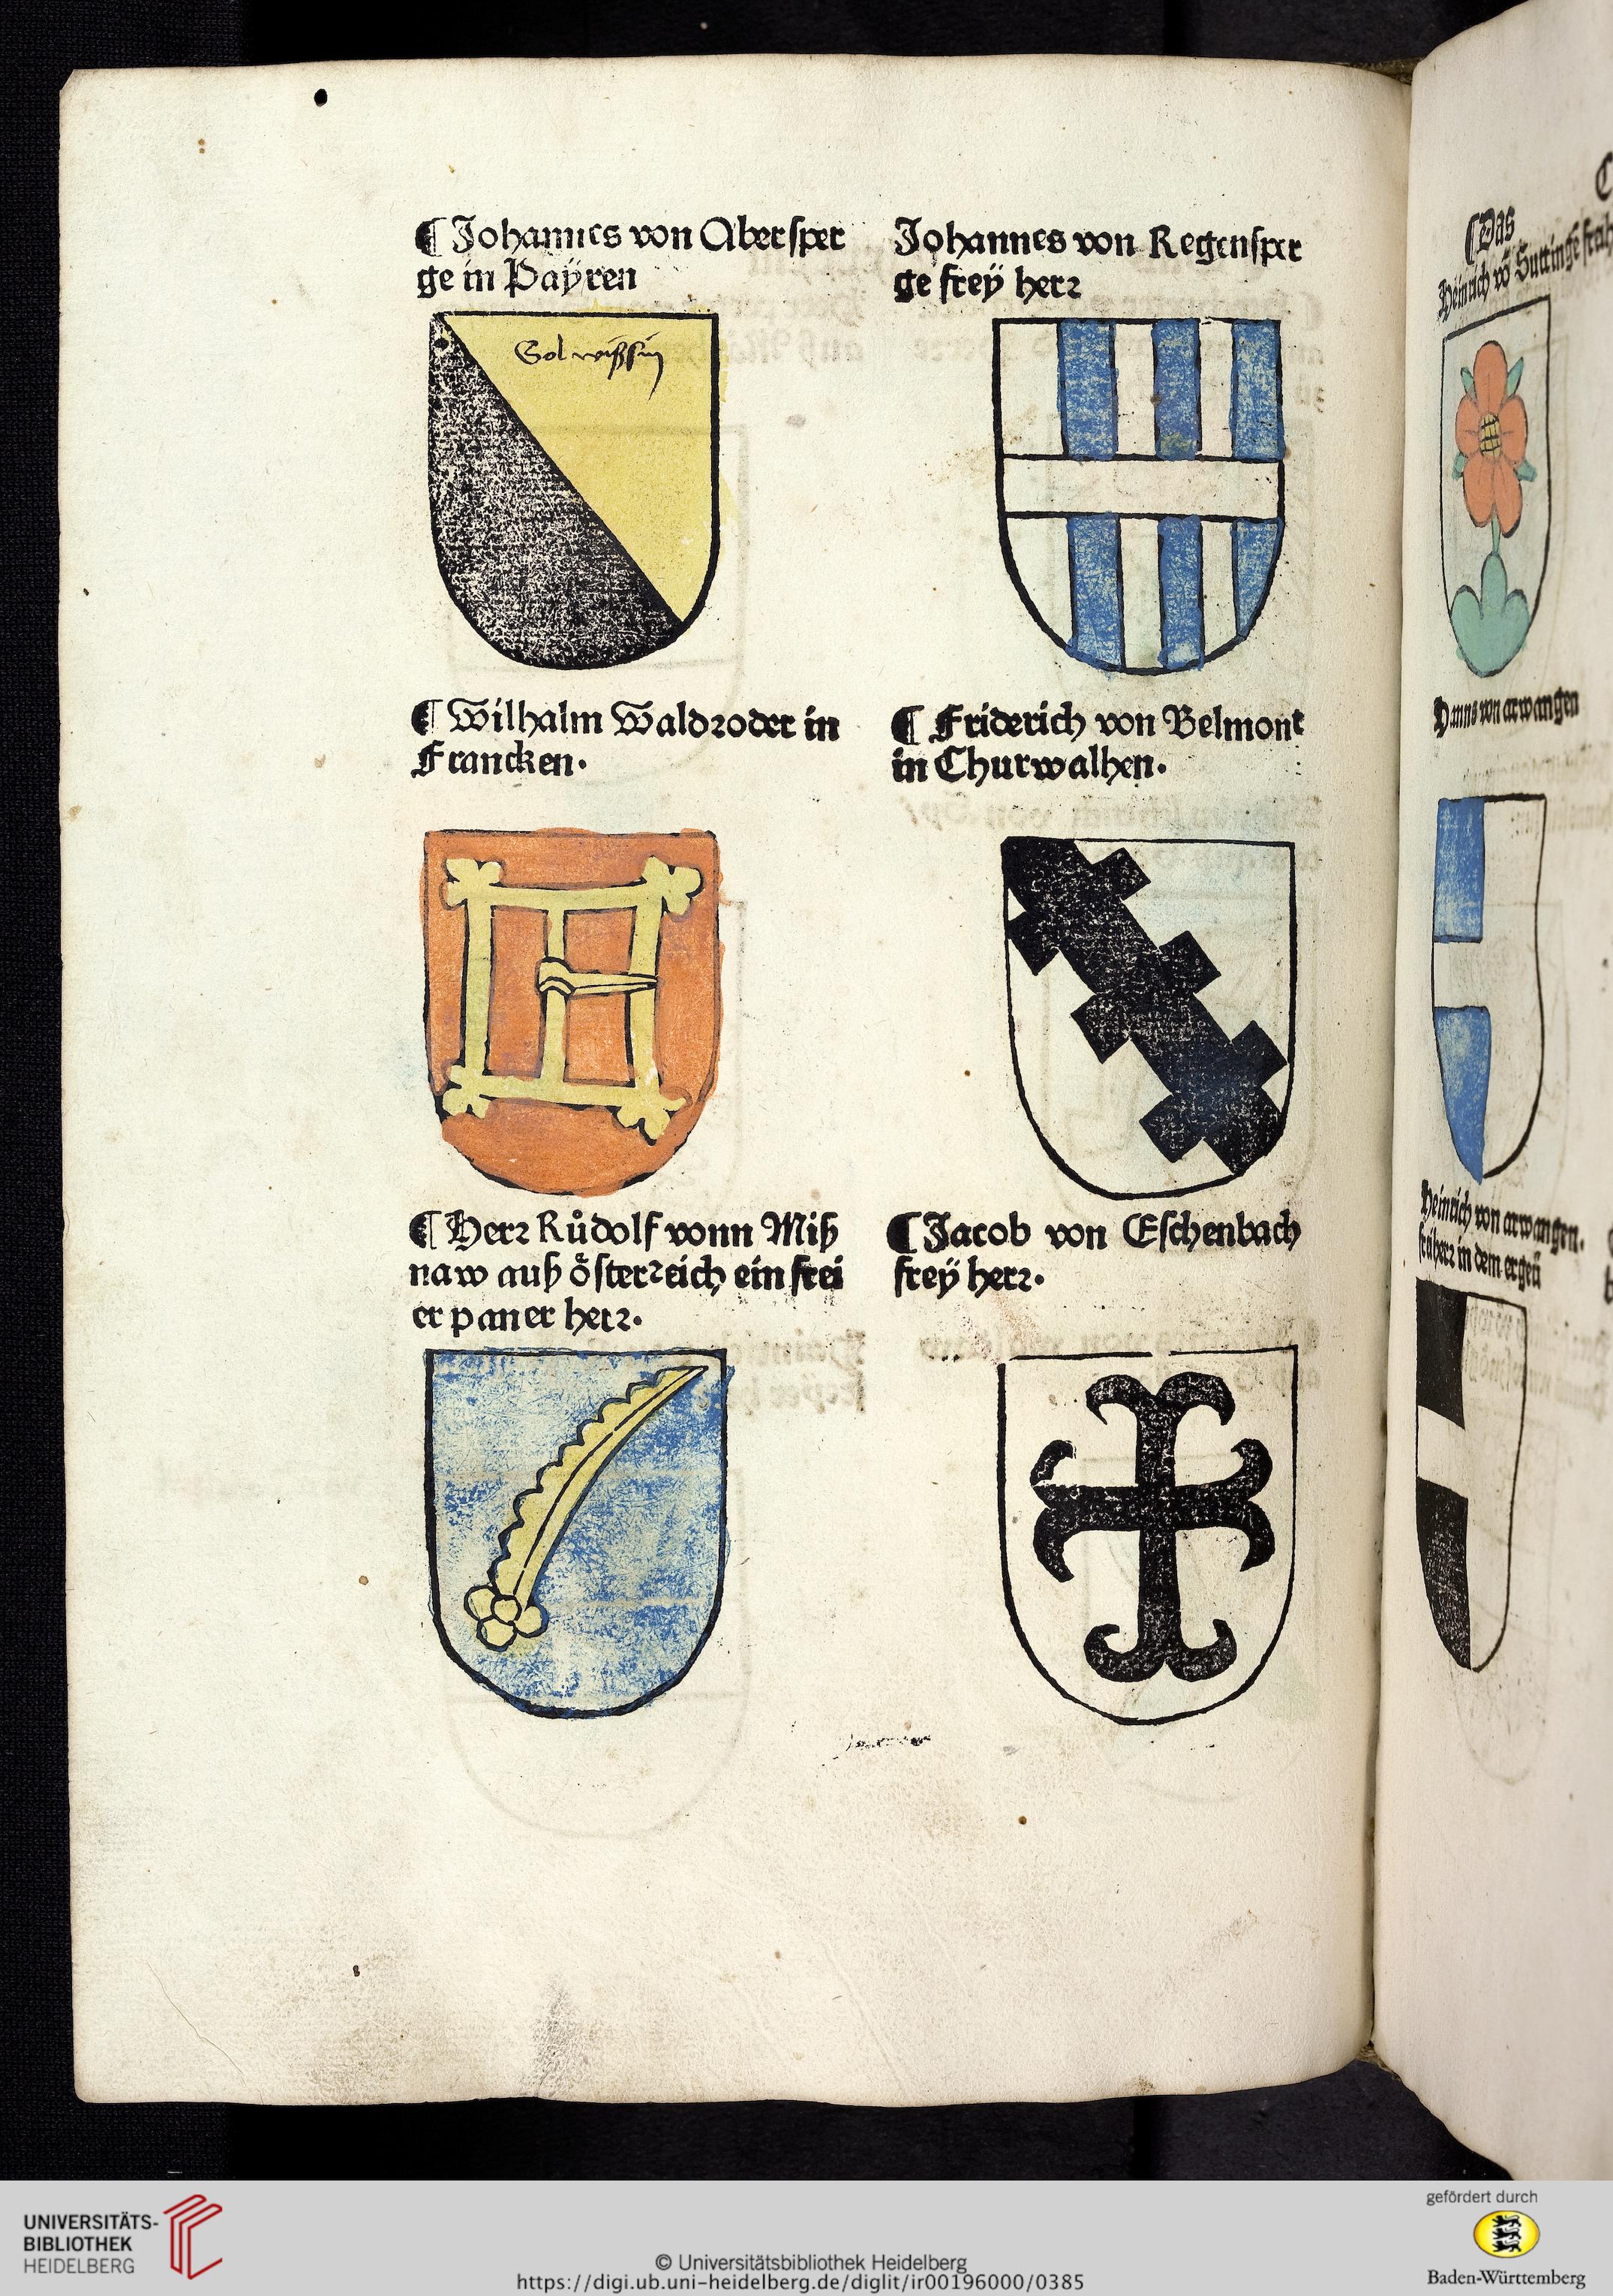 ¶ Johannes von Abersper
ge in Paÿren
Gol weißsin
¶ Wilhalm Waldroder in
Francken.
¶ Herr Růdolf vonn Miß
naw auß österreich ein frei
er paner herr.
Johannes von Regensper
ge freÿ herr
¶ Friderich von Belmont
in Churwalhen.
¶ Jacob von Eschenbach
freÿ herr.
¶ Das
Heinrich vō
Hanns von arwangen
Heinrich von arwangen.
in dem ergeü
UNIVERSITÄTS-
BIBLIOTHEK
HEIDELBERG
© Universitätsbibliothek Heidelberg
https://digi.ub.uni-heidelberg.de/diglit/ir00196000/0385
gefördert durch
Baden-Württemberg